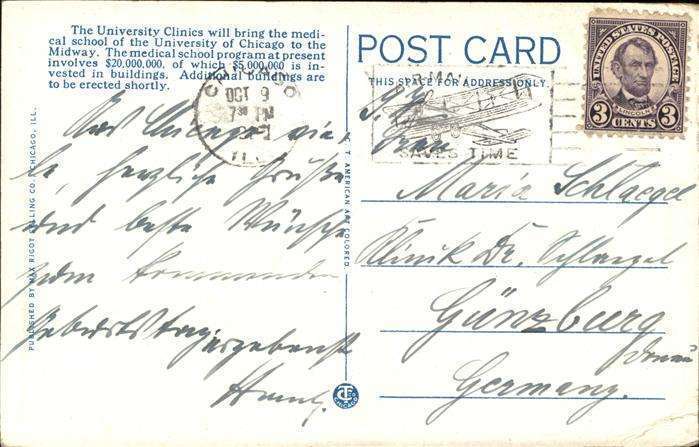 The University Clinics will bring the medi-
cal school of the University of Chicago to the
Midway. The medical school program at present
involves $20,000,000, of which $5,000,000 is in-
vested in buildings. Additional buildings are
to be erected shortly.
CHICAGO
OCT 9
7 30 PM
ILL.
Aus Chicago vie-
le, herzliche Grüße
und beste Wünsche
zum kommenden
Geburtstag
ergebenst
PUBLISHED BY MAX RIGOT SELLING CO. CHICAGO, ILL.
C. T. AMERICAN ART COLORED
POST CARD
THIS SPACE FOR ADDRESS ONLY
AIR MAIL
SAVES TIME
UNITED STATES POSTAGE
LINCOLN
3 CENTS 3
Frau
Maria Schlaegel
Klinik Dr. Schlaegel
Günzburg
Donau
Germany.